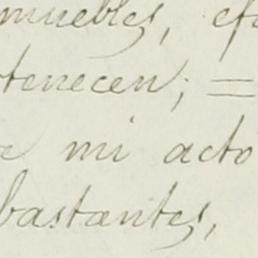 muebles, efe
tenecen; =
e mi acto
bastantes,